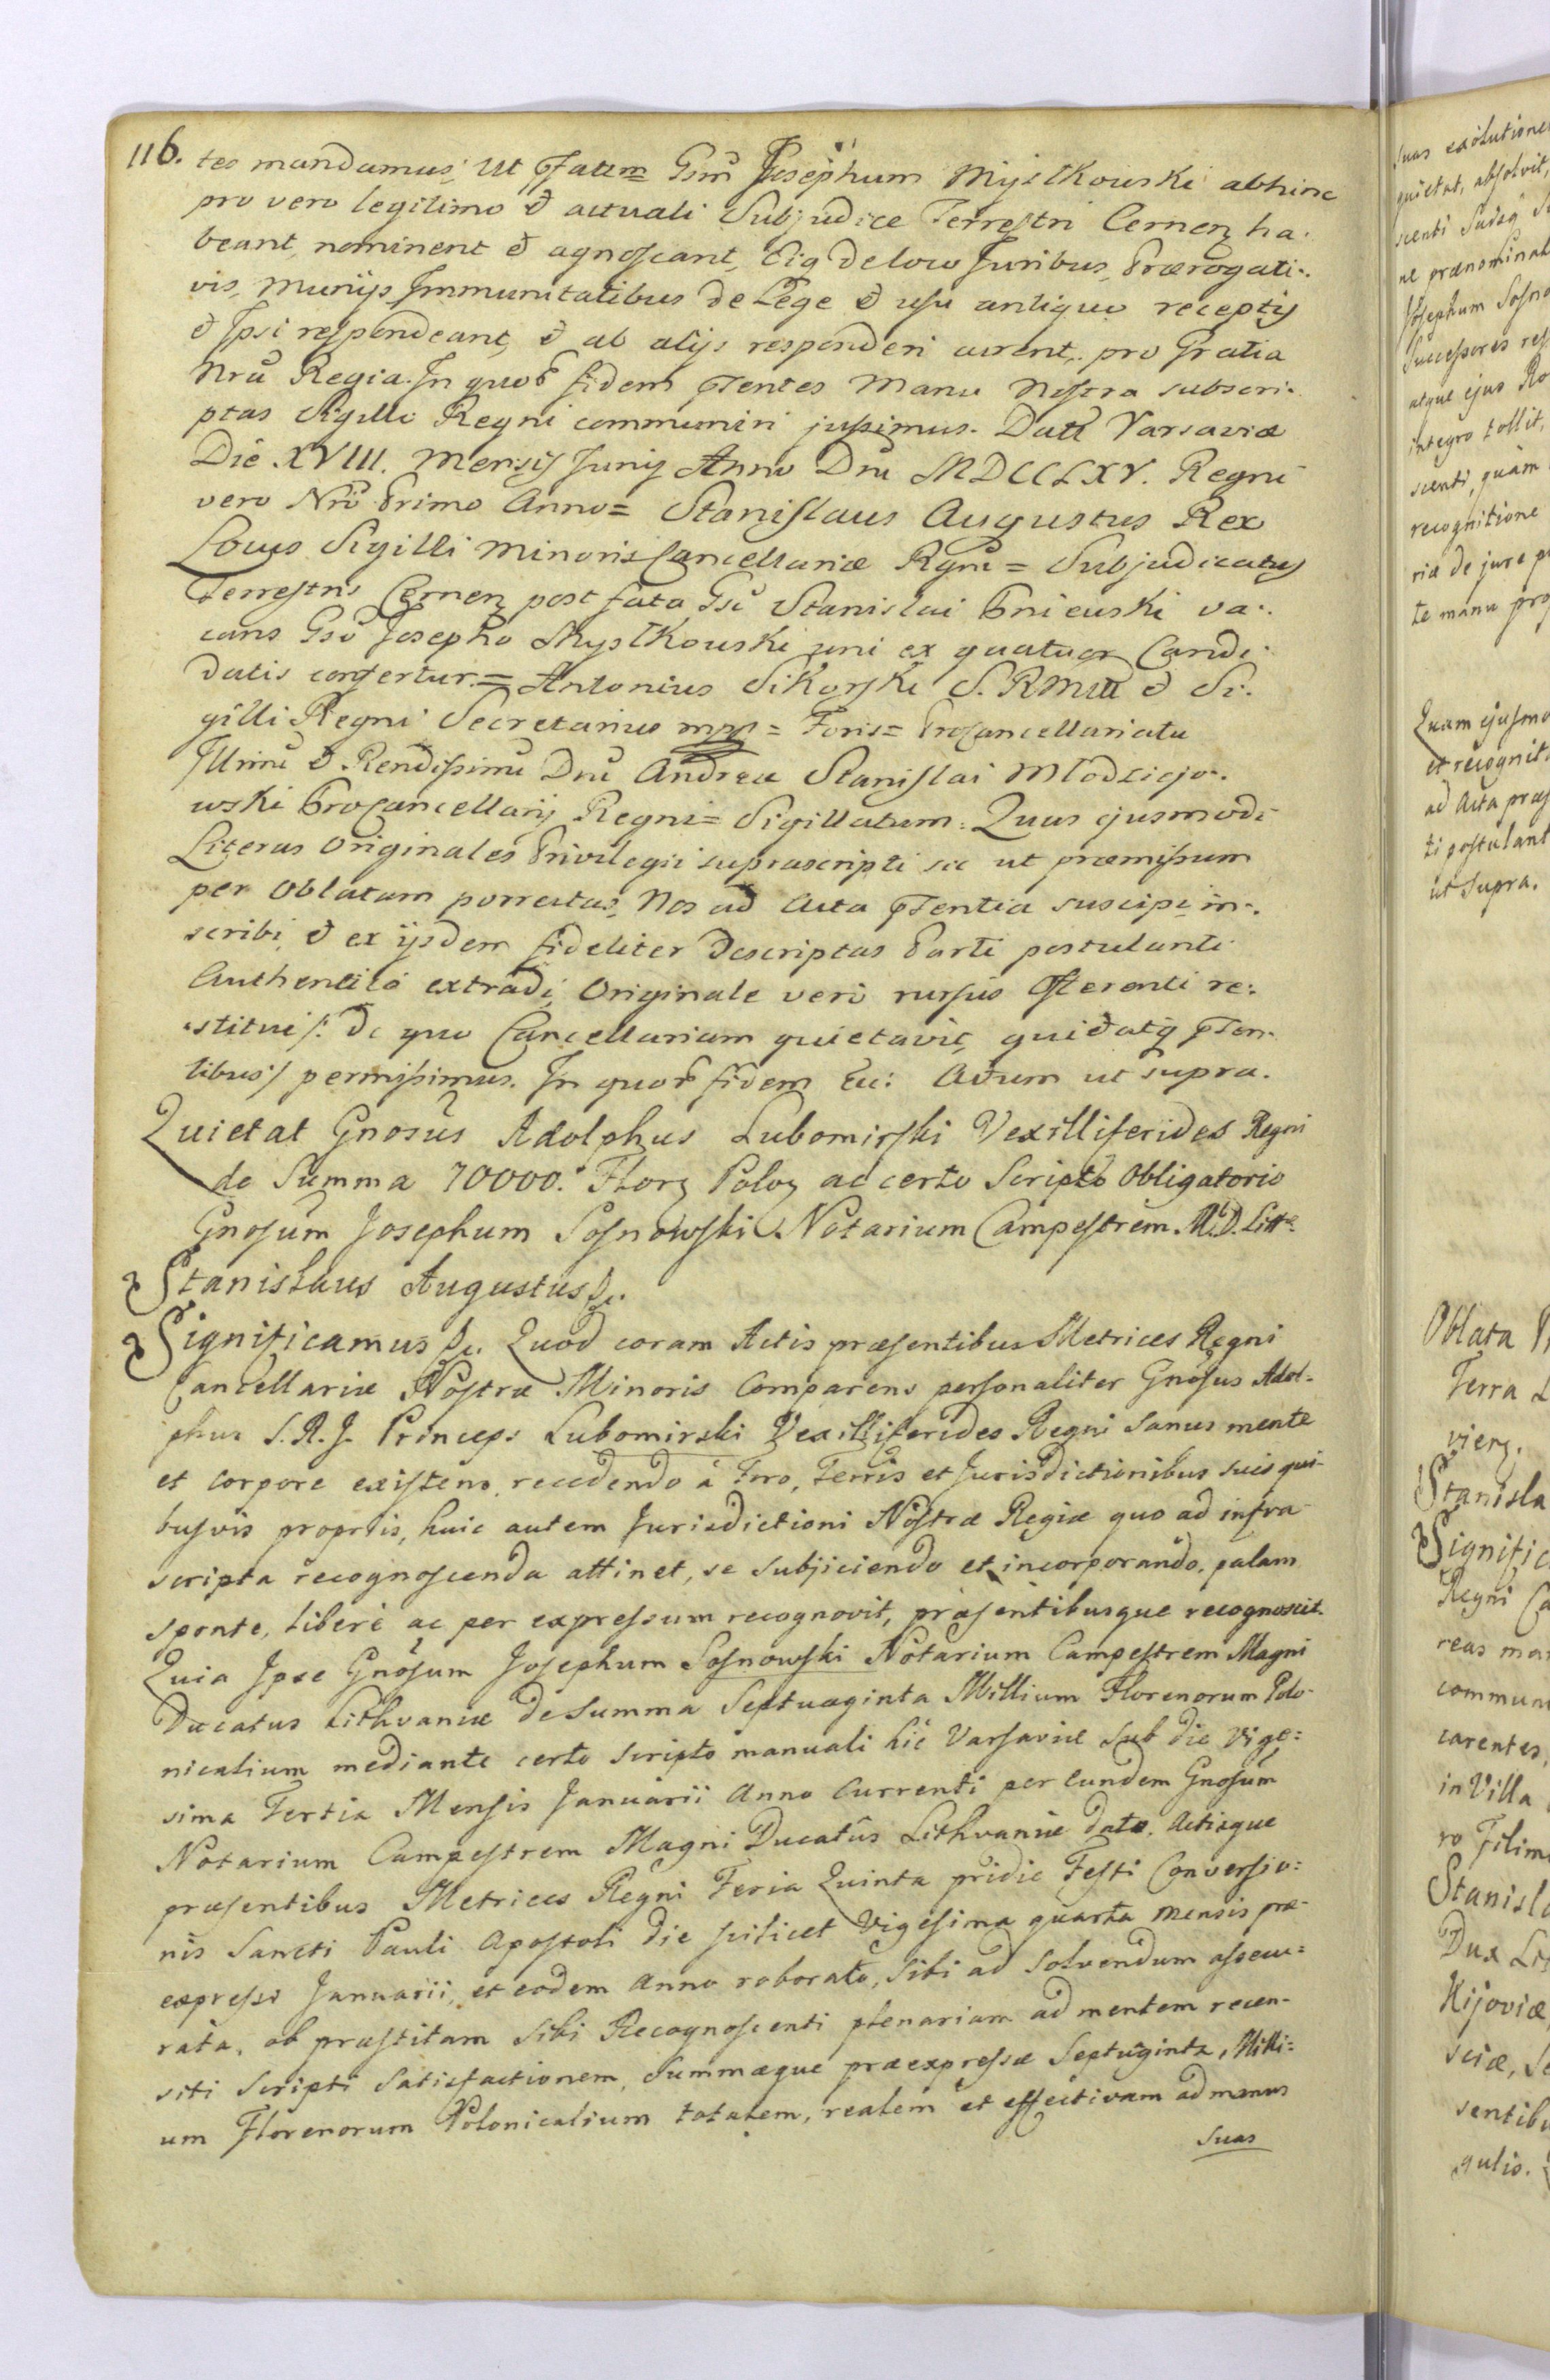 116.
teo mandamus, Ut pfatum Gsm Josephum Mystkowski abhinc
pro vero legitimo & actuali Subjudice Terrestri Cernen ha-
beant, nominent & agnoscant, Eiq de loco Juribus, Prærogati-
vis, Munijs Immunitatibus de Lege & usu antiquo receptis
& Ipsi respondeant, & ab alijs responderi curent, pro Gratia
Nra Regia. In quor fidem pntes Manu Nostra subscri-
ptas Sigillo Regni communiri jussimus. Datt Varsaviæ
Die XVIII. Mensis Junij Anno Dni MDCCLXV. Regni
vero Nri Primo Anno = Stanislaus Augustus Rex
Locus Sigilli Minoris Cancellariæ Rgni = Subjudicatus
Terrestris Cernen post fata Gsi Stanislai Gnieuski va-
cans Gso Josepho Mystkouski uni ex quatuor Candi-
datis confertur = Antonius Sikorski S. RMtti & Si-
gilli Regni Secretarius mpp = Foris = Procancellariatu
Illmi & Rendissimi Dni Andreæ Stanislai Młodziejo-
wski Procancellarij Regni = Sigillatum. Quas ejusmodi
Literas Originales Privilegii suprascripti sic ut præmissum
per Oblatam porrectas, Nos ad Acta pntia suscipi in-
scribi, & ex ijsdem fideliter Descriptas Parti postulanti
Authentico extradi, Originale vero rursus Offerenti re-
stitui /: de quo Cancellariam quietavit, quidatq pnn-
tibus :/ permisimus. In quor fidem Etc: Actum ut supra.
Quietat Gnosus Adolphus Lubomirski Vexilliferides Regni
de Summa 70000. Flor Polo ac certo Scripto Obligatorio
Gnosum Josephum Sosnowski Notarium Campestrem M.D. Litt.
Stanislaus Augustus &c.
Significamus &c. Quod coram Actis præsentibus Metrices Regni
Cancellariæ Nostræ Minoris Comparens personaliter Gnosus Adol-
phus S.R.J. Princeps Lubomirski Vexilliferides Regni sanus mente
et corpore existens, recedendo à Foro, Terris et Jurisdictionibus suis qui-
busvis propriis, huic autem Jurisdictioni Nostræ Regiæ quo ad infra
scripta recognoscenda attinet, se subjiciendo et incorporando, palam
sponte, liberè ac per expressum recognovit, præsentibusque recognoscit.
Quia Ipse Gnosum Josephum Sosnowski Notarium Campestrem Magni
Ducatus Lithvaniæ de Summa Septuaginta Millium Florenorum Polo-
nicalium mediante certo scripto manuali hic Varsaviæ sub die Vige-
sima Tertia Mensis Januarii Anno Currenti per Eundem Gnosum
Notarium Campestrem Magni Ducatûs Lithvaniæ dato. Actisque
præsentibus Metrices Regni Feria Quinta pridie Festi Conversio-
nis Sancti Pauli Apostoli die scilicet Vigesima quarta mensis præ-
expressi Januarii, et eodem Anno roborato, sibi ad solvendum assecu-
rata, ob præstitam sibi Recognoscenti plenariam ad mentem recen-
siti scripti satisfactionem, Summæque præexpressæ Septuginta Milli-
um Florenorum Polonicalium totalem, realem et effectivam ad manus
suas
suas exolutione
quietat, absolvit,
scenti Suisq
ne prænominat
Josephum Sosno
Successores res
atque ejus Ro
integro tollit,
scenti, quàm
recognitione
ria de jure p
te manu pro
Quam ejusmo
et recognit.
ad Acta præs
ti postulant
ut supra.
Oblata
Terra
vien.
Stanisla
Signific
Regni Ca
reas man
commun
carentes,
in Villa
ro Filim
Stanisla
Dux Lit
Kijoviæ
sciæ, Se
sentibu
gulis.